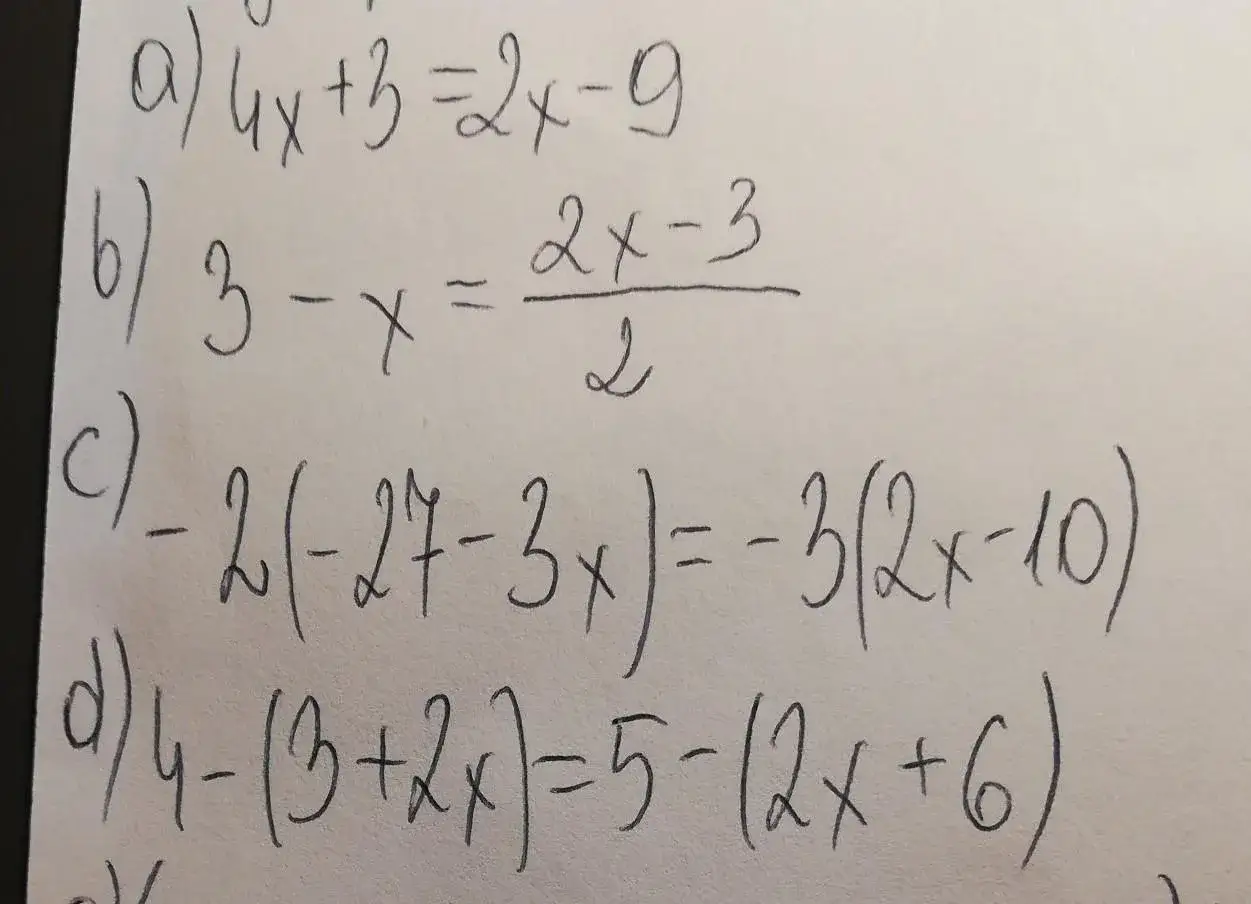 a) 4x+3=2x-9
b) 3-x=\frac{2x-3}{2}
c) -2(-27-3x)=-3(2x-10)
d) 4-(3+2x)=5-(2x+6)